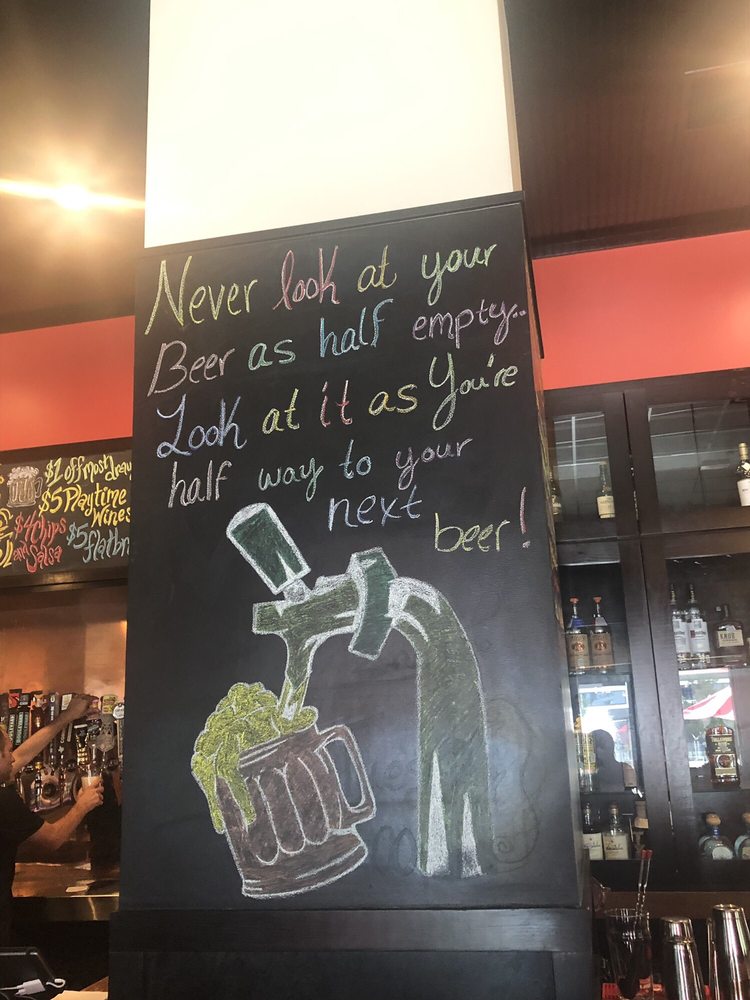 Never look at your
Beer as half empty..
Look at it as You're
half way to your
next
beer!
$1 off most
$5 Playtime
Wines
$4 chips
and Salsa
$5
KNOB